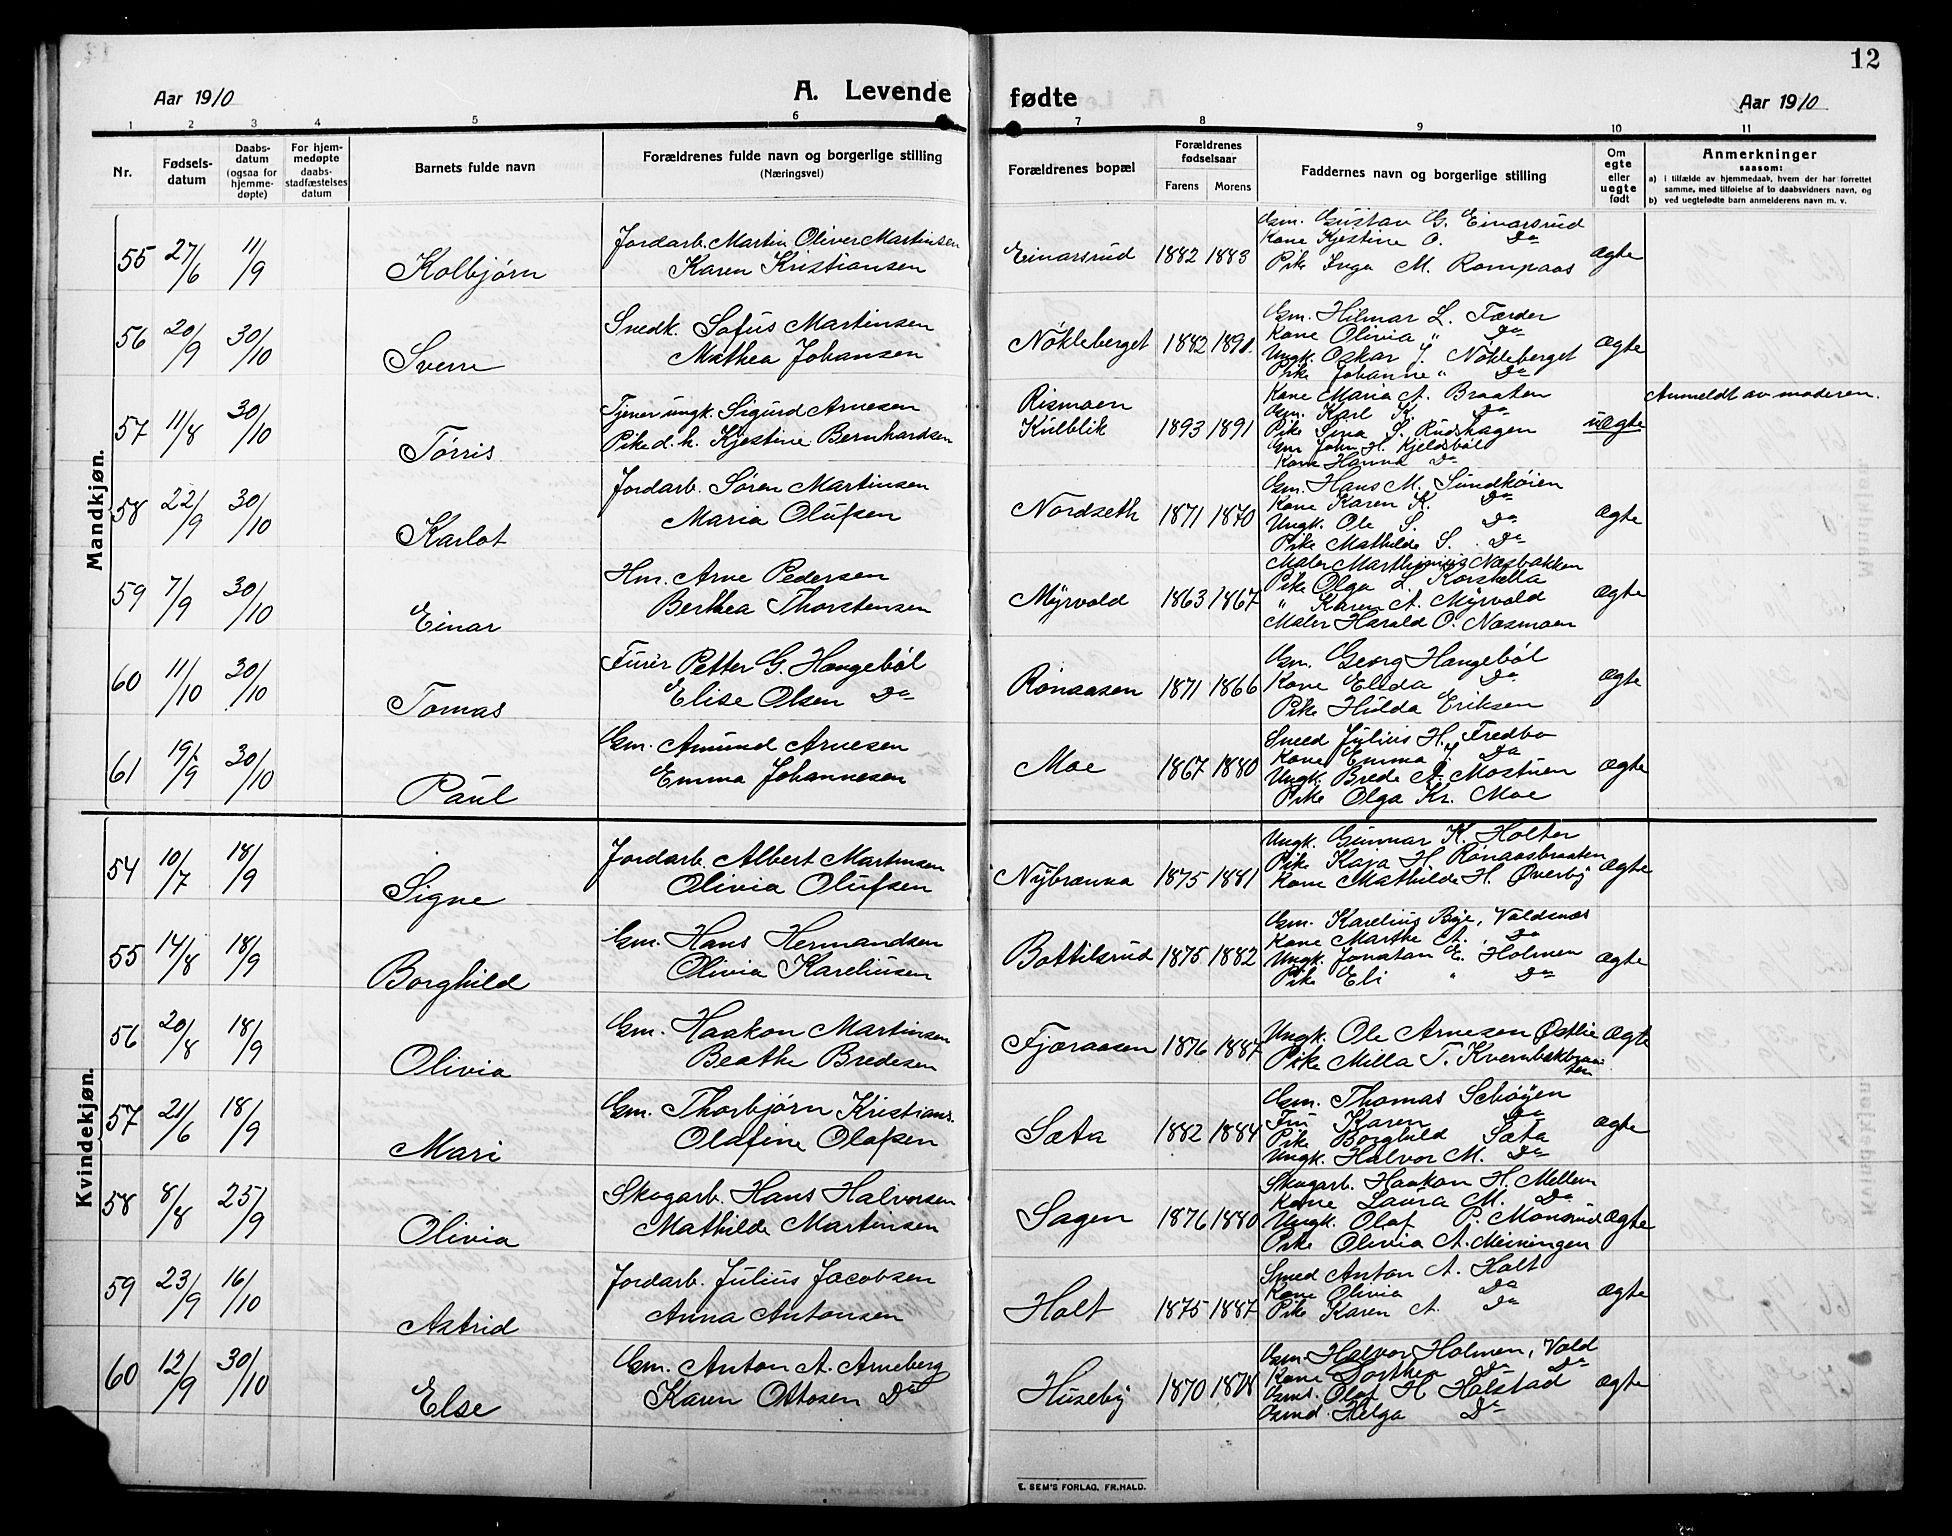 12
Aar 1910
A. Levende fødte
Aar 1910
1 2 3 4 5 6 7 8 9 10 11
Nr.
Fødsels-
datum
Daabs-
datum
(ogsaa for
hjemme-
døpte)
For hjem-
medøpte
daabs-
stadfæstelses
datum
Barnets fulde navn
Forældrenes fulde navn og borgerlige stilling
(Næringsvei)
Forældrenes bopæl
Forældrenes
fødselsaar
Farens Morens
Faddernes navn og borgerlige stilling
Om
egte
eller
uegte
født
Anmerkninger
saasom:
a) i tilfælde av hjemmedaab, hvem der har forrettet
samme, med tilføielse af to daabsvidners navn, og
b) ved uegtefødte barn anmelderens navn m. v.
Mandkjøn.
55 27/6 11/9 Kolbjørn
Jordarb. Martin Oliver Martinsen
Karen Kristiansen
Einarsrud 1882 1883
Gm. Gustav G. Einarsrud
Kone Kjestine O. Do
Pike Inga M. Rompaas
Ægte
56 20/9 30/10 Sverre
Snedk. Sofus Martinsen
Mathea Johansen
Nökleberget 1882 1891.
Gm. Hilmar L. Færder
Kone Olivia " Do
Ungk. Oskar J. Nökleberget
Pike Johanne " Do
Ægte
57 11/8 30/10 Tørris
Tjener ungk. Sigurd Arnesen
Pike d. h. Kjestine Bernhardsen
Rismoen
Kulblik 1893 1891
Kone Maria A. Braaten
Gm. Karl K. Do
Pike Lina S. Rudshagen
Gm John H. Kjeldsböl
Kone Hanna Do
uægte
Anmeldt av moderen.
58 22/9 30/10 Karlot
Jordarb. Søren Martinsen
Maria Olufsen
Nordseth 1871 1870
Gm. Hans M. Sundköien
Kone Karen K. Do
Ungk. Ole S. Do
Pike Mathilde S. Do
Ægte
59 7/9 30/10 Einar
Hm. Arne Pedersen
Berthea Thorstensen
Myrvold 1863 1867
Maler Marthinius Næsbakken
Pike Olga L. Korsbella
" Karen A. Myrvold
Maler Harald O. Næsmoen
Ægte
60 11/10 30/10 Tomas
Furer Petter G. Haugeböl
Elise Olsen Do
Rönaasen 1871 1866
Gm. Georg Haugeböl
Kone Elida Do
Pike Hulda Eriksen
Ægte
61 19/9 30/10 Paul
Gm. Amund Arnesen
Emma Johannesen
Moe 1867 1880
Smed Julius H. Fredbo
Kone Emma J. Do
Ungk. Brede A. Mostuen
Pike Olga Kr. Moe
Ægte
Kvindekjøn.
54 10/7 18/9 Signe
Jordarb. Albert Martinsen
Olivia Olufsen
Nybrænna 1875 1881
Ungk. Gunnar K. Holter
Pike Kaja H. Rönaasbraaten
Kone Mathilde H. Øverby
Ægte
55 14/8 18/9 Borghild
Gm. Hans Hermandsen
Olivia Kareliusen
Bottilsrud 1875 1882
Gm. Karelius Bye, Valdsnæs
Kone Marthe A. Do
Ungk. Jonatan E. Holmen
Pike Eli " Do
Ægte
56 20/8 18/9 Olivia
Gm. Haakon Martinsen
Beathe Bredesen
Fjæraasen 1876 1887
Ungk. Ole Arnesen Østlie
Pike Milla T. Kvernbækbraa-
ten
Ægte
57 21/6 18/9 Mari
Gm. Thorbjørn Kristians.
Olafine Olafsen
Sæta 1882 1884
Gm. Thomas Schöyen
Fru Karen Do
Pike Borghild Sæta
Ungk. Halvor M. Do
Ægte
58 8/8 25/9 Olivia
Skogarb. Hans Halvorsen
Mathilde Martinsen
Sagen 1876 1880
Skogarb. Haakon H. Mellem
Kone Laura M. Do
Ungk. Olaf P. Monsrud
Pike Olivia A. Meiningen
Ægte
59 23/9 16/10 Astrid
Jordarb. Julius Jacobsen
Anna Antonsen
Holt 1875 1887
Smed Anton A. Holt
Kone Olivia Do
Pike Karen A. Do
Ægte
60 12/9 30/10 Else
Gm. Anton A. Arneberg
Karen Ottosen Do
Huseby 1870
Gm. Halvor Holmen, Vold
Kone Dorthea Do Do
Olaf H. Holstad
Helga Do
Ægte
E. SEM'S FORLAG, FR.HALD.